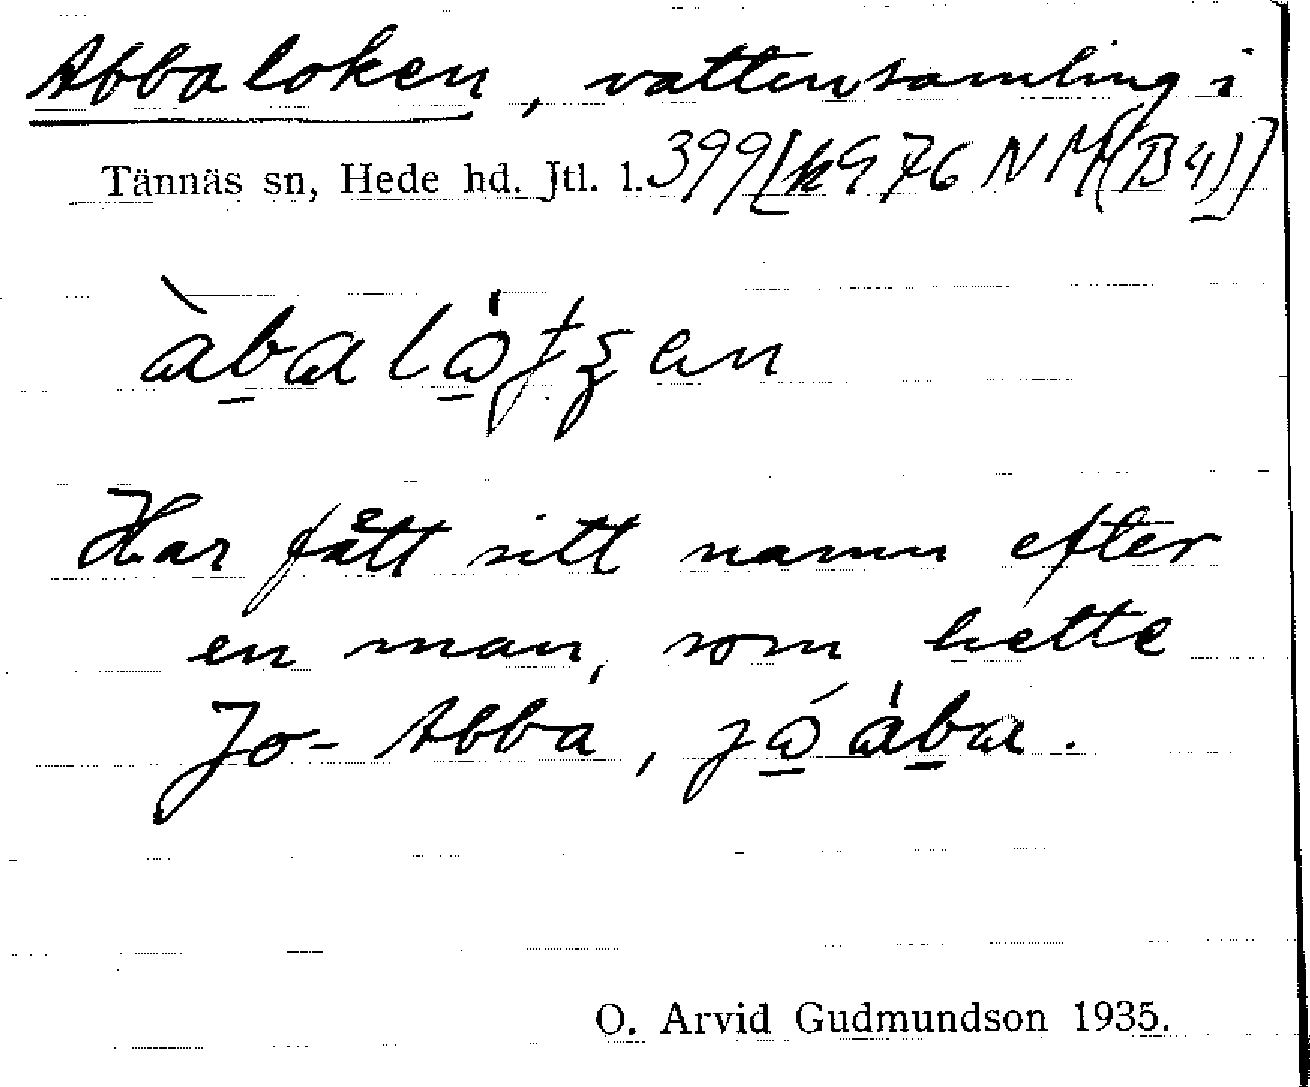 Abbaloken, vattensamling i
Tännäs sn, Hede hd. Jtl. l. 399 [k 976 NM (B4)]
Har fått sitt namn efter
en man, som hette
Jo-Abba,
O. Arvid Gudmundson 1935.